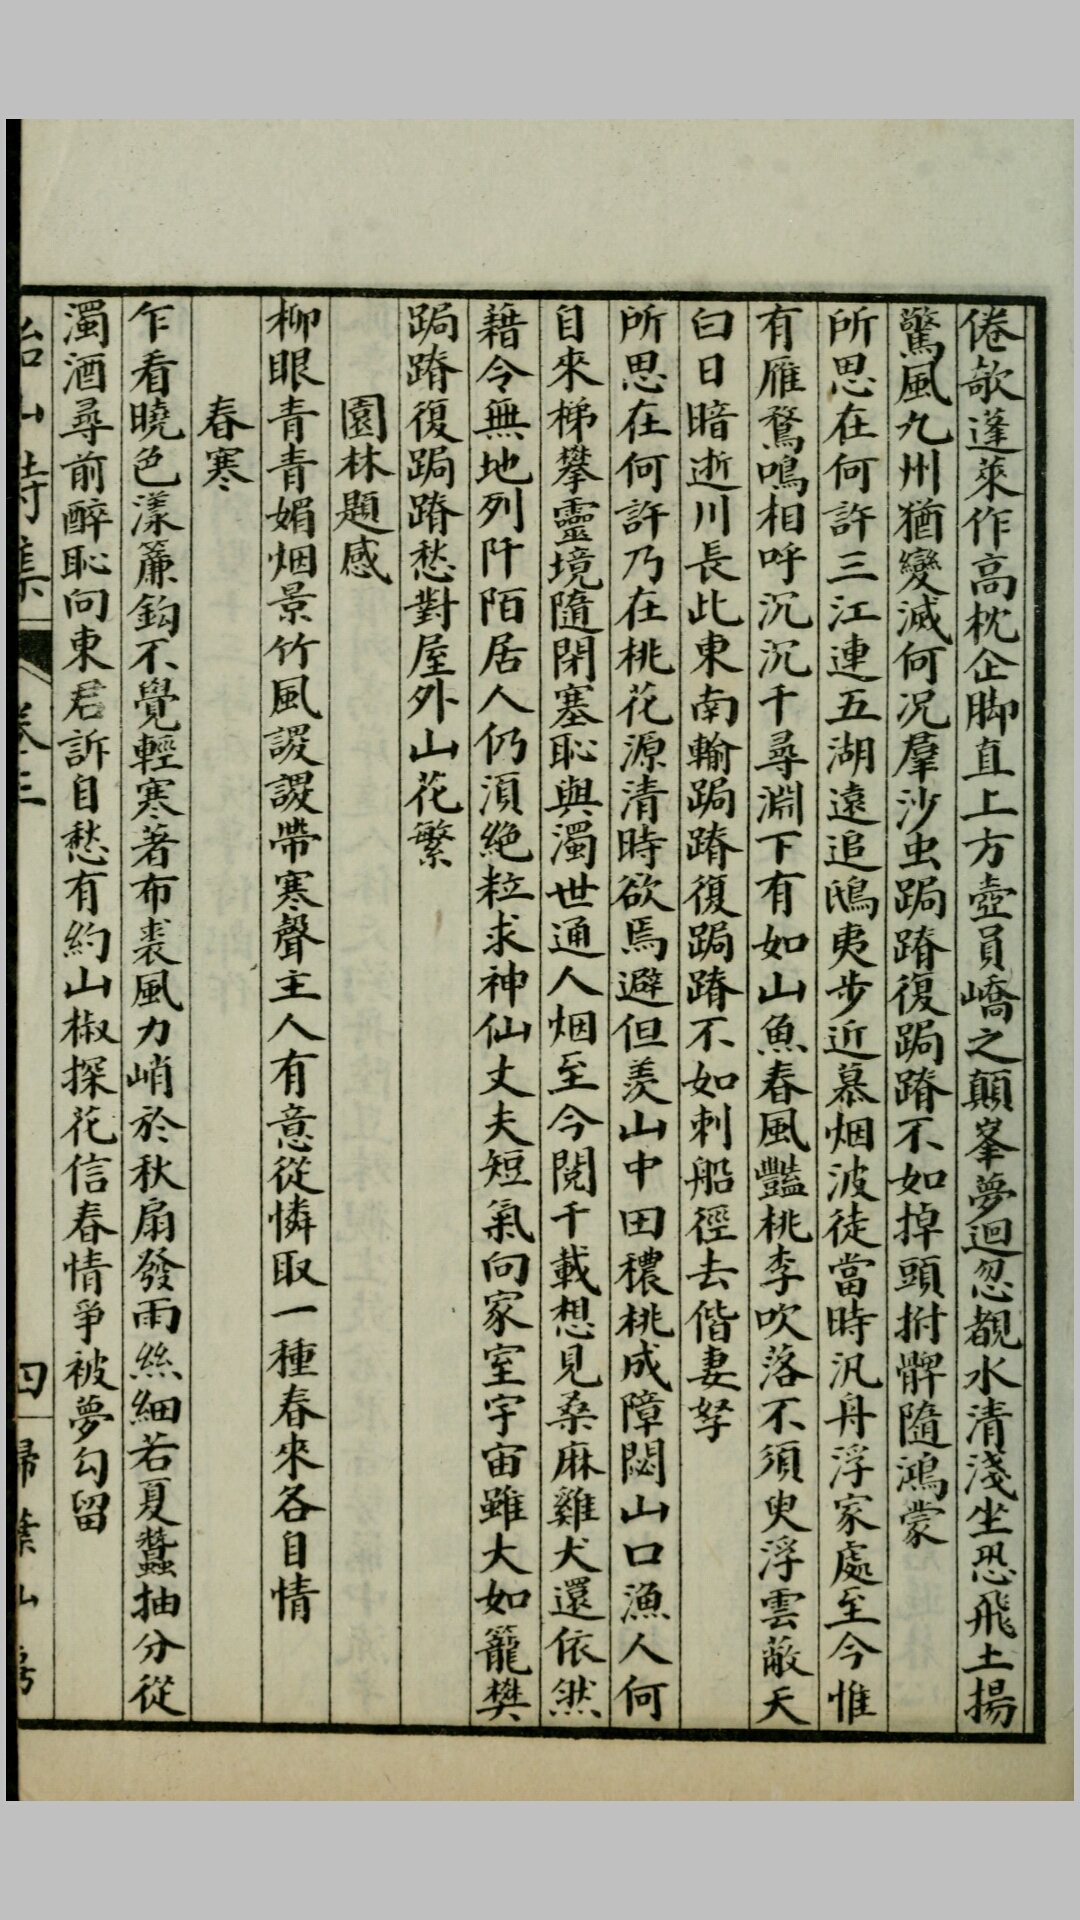 倦欹蓬萊作高枕企脚直上方壺員嶠之顛峯夢迴忽覩水清淺坐恐飛土揚
驚風九州猶變滅何况羣沙虫跼蹐復跼蹐不如掉頭拊髀隨鴻蒙
所思在何許三江連五湖遠追鴟夷步近慕烟波徒當時汎舟浮家處至今惟
有雁鶩鳴相呼沉沉千尋淵下有如山魚春風豔桃李吹落不須臾浮雲蔽天
白日暗逝川長此東南輸跼蹐復跼蹐不如刺船徑去偕妻孥
所思在何許乃在桃花源清時欲焉避但羨山中田穠桃成障閟山口漁人何
自來梯攀靈境隨閉塞恥與濁世通人烟至今閱千載想見桑麻雞犬還依然
藉令無地列阡陌居人仍須絶粒求神仙丈夫短氣向家室宇宙雖大如籠樊
跼蹐復跼蹐愁對屋外山花繁
園林題感
柳眼青青媚烟景竹風謖謖帶寒聲主人有意從憐取一種春來各自情
春寒
乍看曉色漾簾鈎不覺輕寒著布裘風力峭於秋扇發雨絲細若夏蠶抽分從
濁酒尋前醉恥向東君訴自愁有約山椒探花信春情爭被夢勾留
飴山詩集 卷三 四 掃葉山房